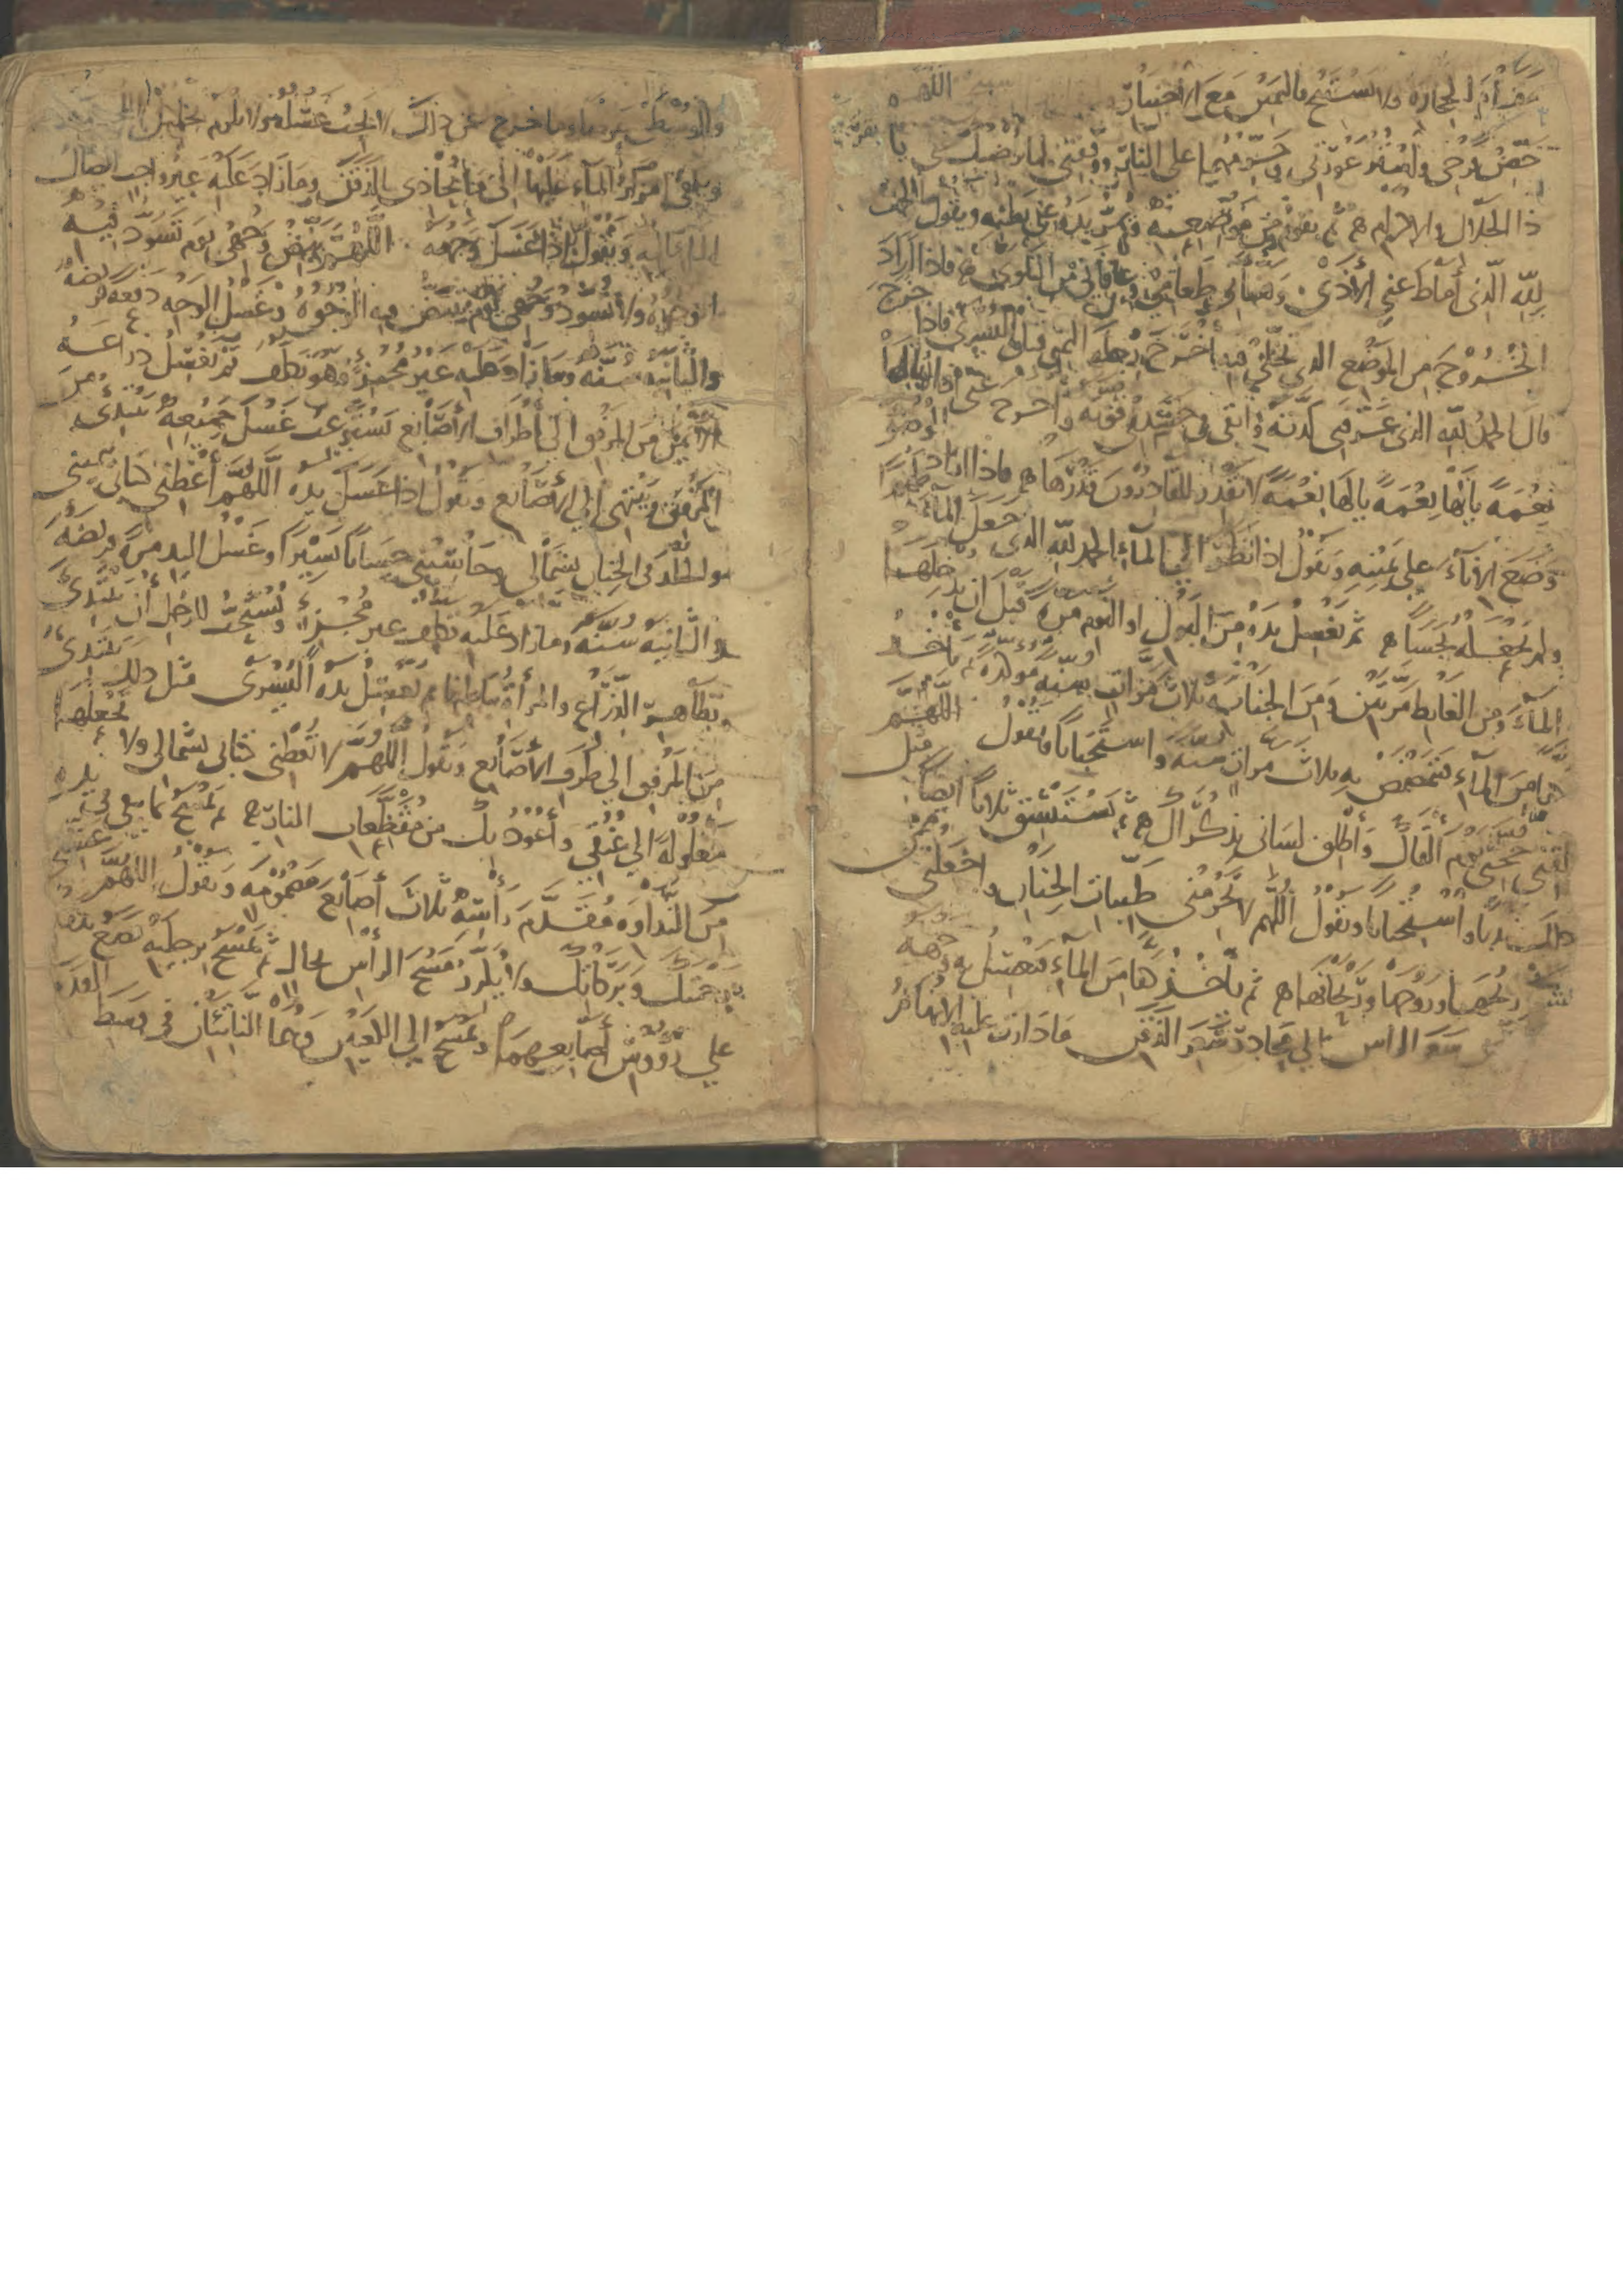 الحجارة ولا يستنج باليمين مع الاختيار اللهم
حصن فرجي واستر عورتي وحرمهما على النار ووفقني لما يرضيك عني يا
ذا الجلال والاكرام ثم يقوم من موضعه ويمر يده على بطنه ويقول الحمد
لله الذي أماط عني الأذى وهنأني طعامي وعافاني من البلوى فاذا اراد
الخروج من الموضع الذي تخلى فيه أخرج رجله اليمنى قبل اليسرى فاذا خرج
قال الحمد لله الذي عرفني لذته وأبقى في جسدي قوته وأخرج عني أذاه يالها
نعمة يالها نعمة يالها نعمة لا يقدر القادرون قدرها فاذا اراد الوضوء
وضع الاناء على يمينه ويقول اذا نظر الى الماء الحمد لله الذي جعل الماء طهورا
ولم يجعله نجسا ثم يغسل يده من البول او النوم مرة قبل ان يدخلها
الماء ومن الغايط مرتين ومن الجنابة ثلاث مرات سنة مؤكدة ثم يأخذ
من الماء فيتمضمض به ثلاث مرات سنة واستحبابا ويقول اللهم
لقني حجتي يوم ألقاك وأطلق لساني بذكراك ثم يستنشق ثلاثا ايضا مثل
ذلك ندبا واستحبابا ويقول اللهم لا تحرمني طيبات الجنان واجعلني ممن
يشم ريحها وروحها وريحانها ثم يأخذ كفا من الماء فيغسل به وجهه
من شعر الرأس الى محادر شعر الذقن ما دارت عليه الابهام
والوسطى عرضا وما خرج عن ذلك لا يجب غسله ولا يلزم تخليل
ويكفي امرار الماء عليها الى ما يحاذي الذقن وما زاد عليه غير واجب ايصال
الماء اليه ويقول اذا غسل وجهه اللهم بيض وجهي يوم تسود فيه
الوجوه ولا تسود وجهي يوم تبيض فيه الوجوه وغسل الوجه دفعة فريضة
والثانية سنة وما زاد عليه غير مجزئ وهو تكلف ثم يغسل ذراعه
الايمن من المرفق الى أطراف الأصابع يستوعب غسل جميعه يبتدئ من
المرفق وينتهي الى الأصابع ويقول اذا غسل يده اللهم أعطني كتابي بيميني
والخلد في الجنان بشمالي وحاسبني حسابا يسيرا وغسل اليد مرة فريضة
والثانية سنة وما زاد عليه تكلف غير مجزئ ويستحب للرجل أن يبتدئ
بظاهر الذراع والمرأة بباطنها ثم يغسل يده اليسرى مثل ذلك يبتدئ
من المرفق الى طرف الأصابع ويقول اللهم لا تعطني كتابي بشمالي ولا تجعلها
مغلولة الى عنقي وأعوذ بك من مقطعات النار ثم يمسح بما بقي في يده
من النداوة مقدم رأسه ثلاث أصابع مضمومة ويقول اللهم غشني
برحمتك وبركاتك ولا يكرر مسح الرأس بحال ثم يمسح برجليه يضع يده
على رؤوس أصابعهما ويمسح الى الكعبين وهما الناتئان في وسط القدم